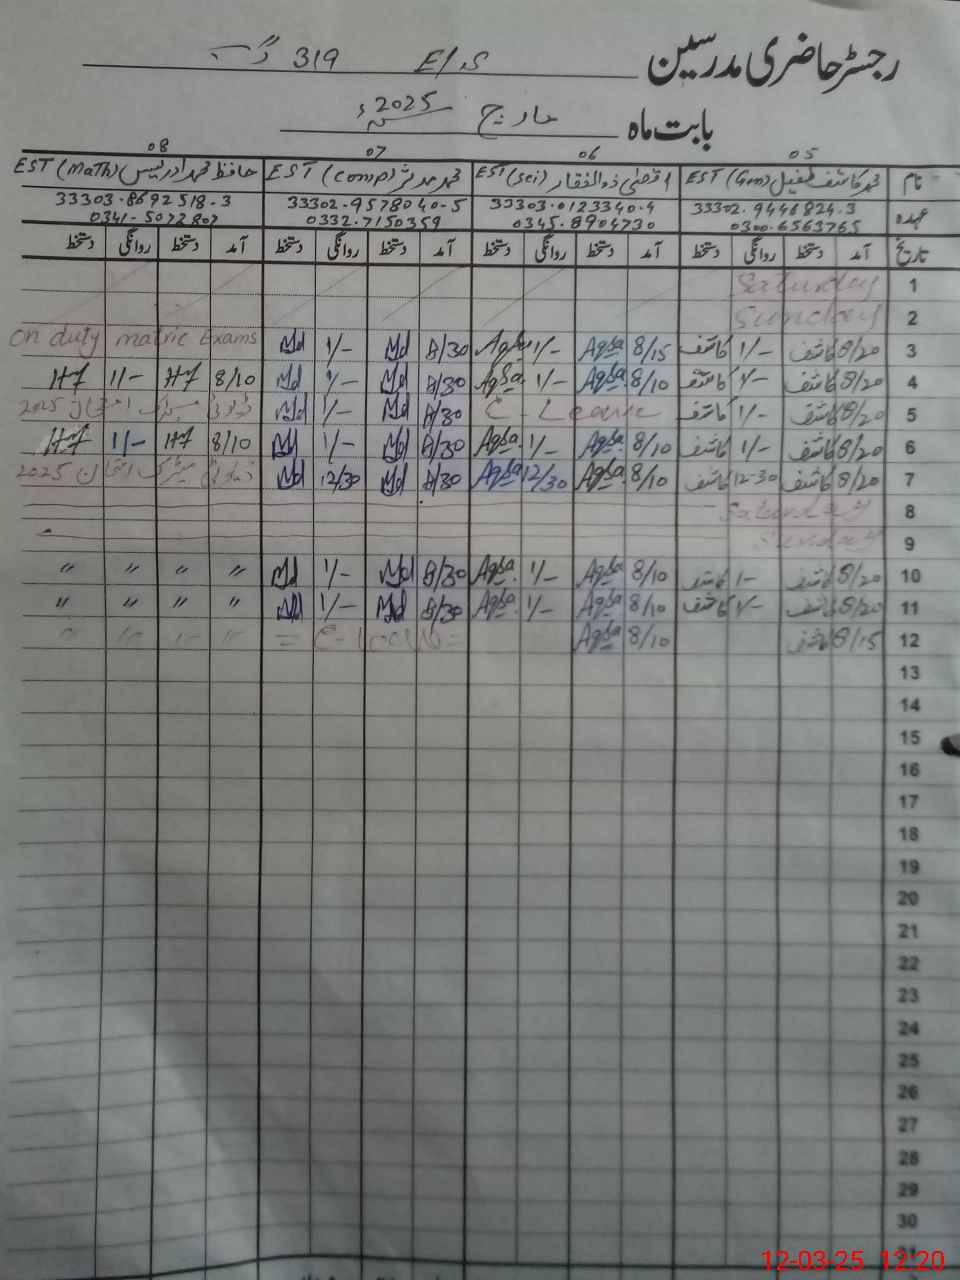 رجسٹر حاضری مدرسین E/S 319 گ ب
بابت ماہ مارچ 2025ء
05 06 07 08
نام محمد کاشف طفیل EST (Gm) اقصیٰ ذوالفقار EST (Sci) محمد مدثر EST (Comp) حافظ محمد ادریس EST (Math)
عہدہ 33302-9446824-3 33303-0123340-4 33302-9578040-5 33303-8692518-3
0300-6563765 0345-8904730 0332-7150359 0341-5072807
تاریخ آمد دستخط روانگی دستخط آمد دستخط روانگی دستخط آمد دستخط روانگی دستخط آمد دستخط روانگی دستخط
1 Saturday
2 Sunday
3 8/20 کاشف 1/- کاشف 8/15 Aqsa 1/- Aqsa 8/30 Md 1/- Md On duty matric Exams
4 8/20 کاشف 1/- کاشف 8/10 Aqsa 1/- Aqsa 8/30 Md 1/- Md 8/10 HF 1/- HF
5 8/20 کاشف 1/- کاشف C - Leave 8/30 Md 1/- Md ڈیوٹی میٹرک امتحان 2025
6 8/20 کاشف 1/- کاشف 8/10 Aqsa 1/- Aqsa 8/30 Md 1/- Md 8/10 HF 1/- HF
7 8/20 کاشف 12-30 کاشف 8/10 Aqsa 12/30 Aqsa 8/30 Md 12/30 Md ڈیوٹی میٹرک امتحان 2025
8 Saturday
9 Sunday
10 8/20 کاشف 1- کاشف 8/10 Aqsa 1/- Aqsa 8/30 Md 1/- Md " " " "
11 8/20 کاشف 1/- کاشف 8/10 Aqsa 1/- Aqsa 8/30 Md 1/- Md " " " "
12 8/15 کاشف 8/10 Aqsa = C - Leave = " " " "
13
14
15
16
17
18
19
20
21
22
23
24
25
26
27
28
29
30
31
12-03-25 12:20